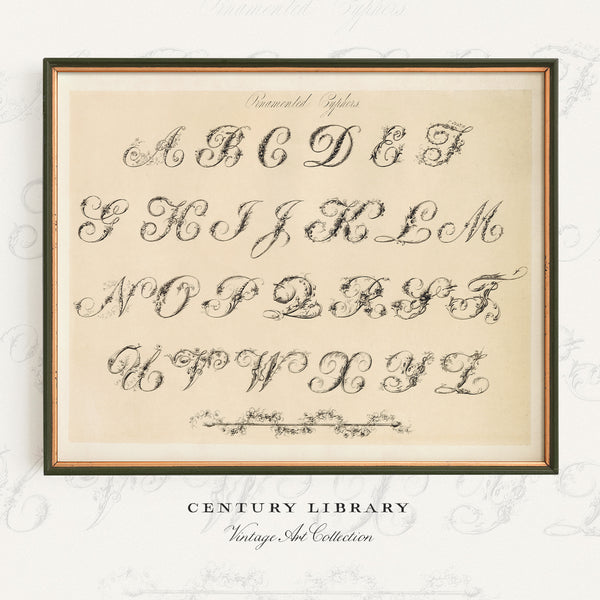 Ornamented Cyphers
Ornamented Cyphers
A B C D E F
G H I J K L M
N O P Q R S T
U V W X Y Z
CENTURY LIBRARY
Vintage Art Collection